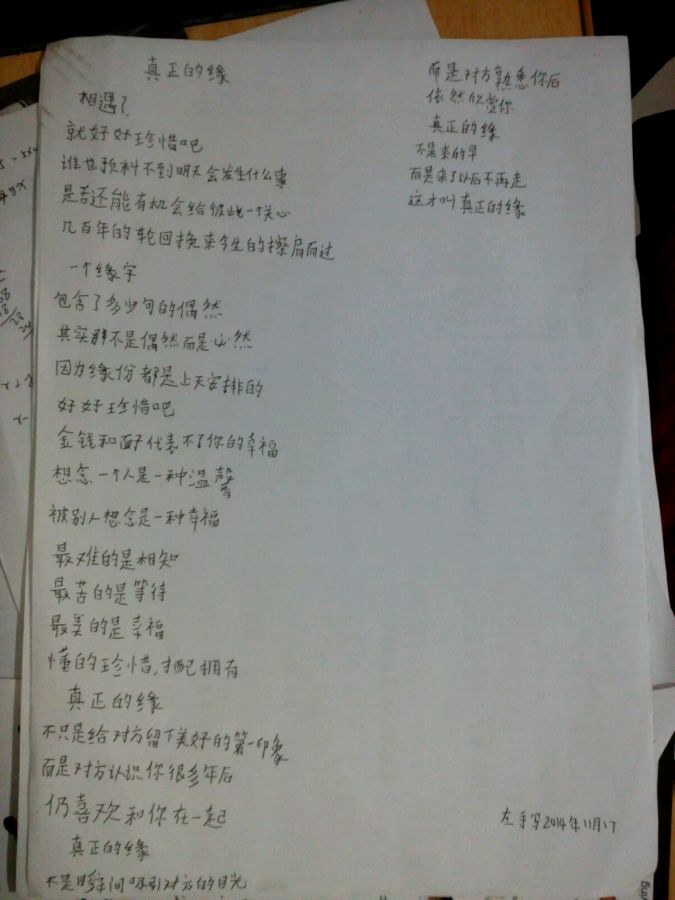 真正的缘
相遇了
就好好珍惜吧
谁也预料不到明天会发生什么事
是否还能有机会给彼此一个关心
几百年的轮回换来今生的擦肩而过
一个缘字
包含了多少句的偶然
其实那不是偶然而是必然
因为缘份都是上天安排的
好好珍惜吧
金钱和面子代表不了你的幸福
想念一个人是一种温馨
被别人想念是一种幸福
最难的是相知
最苦的是等待
最美的是幸福
懂的珍惜,才配拥有
真正的缘
不只是给对方留下美好的第一印象
而是对方认识你很多年后
仍喜欢和你在一起
真正的缘
不是瞬间吸引对方的目光
而是对方熟悉你后
依然欣赏你
真正的缘
不是来的早
而是来了以后不再走
这才叫真正的缘
左手写2014年11月17